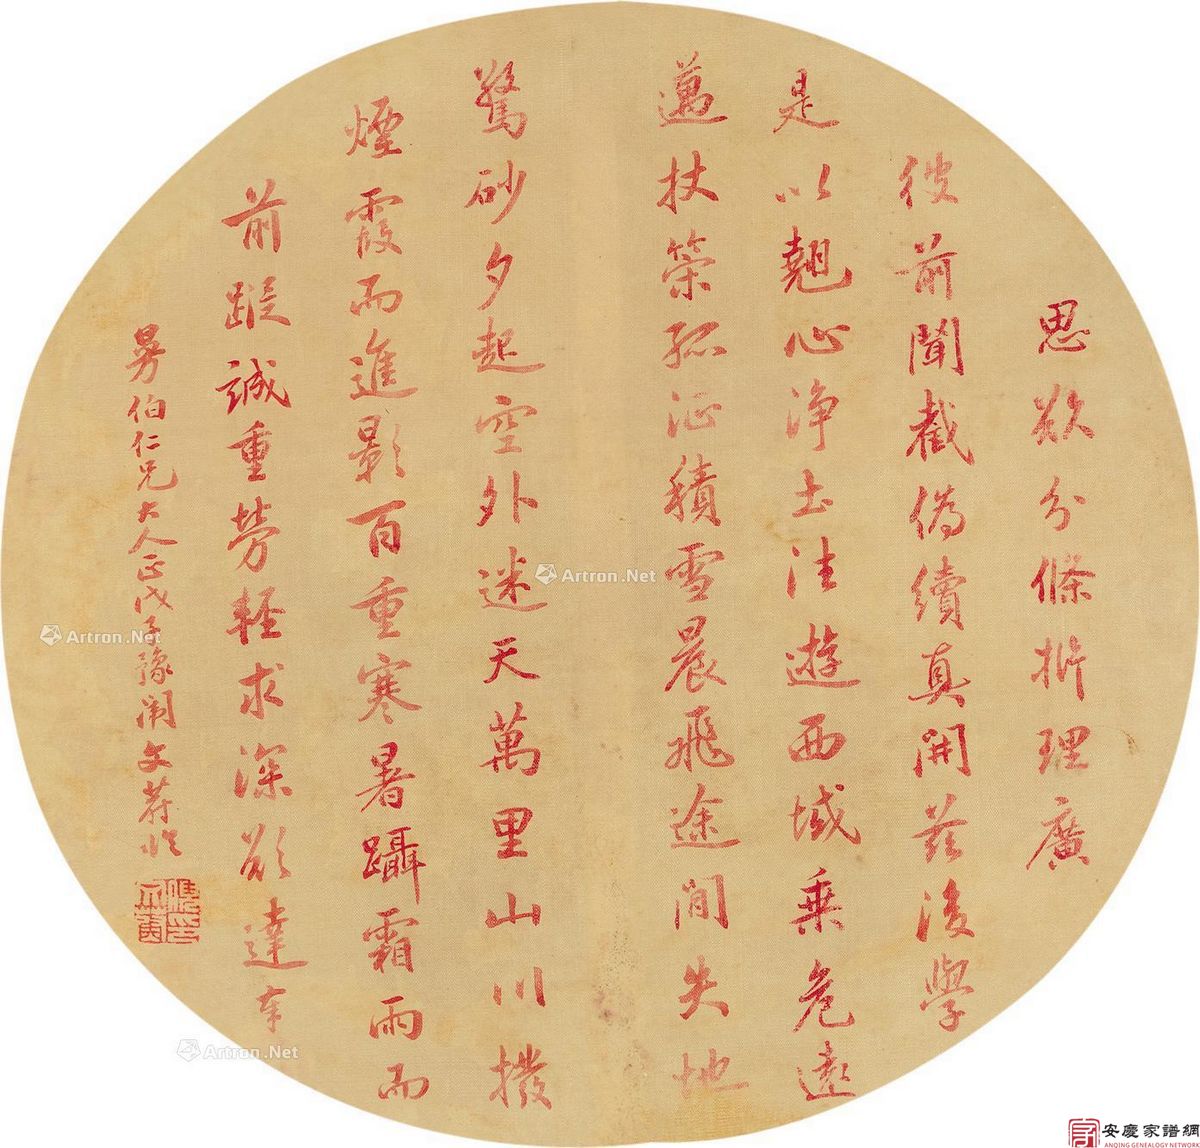 思欲分條析理廣
彼前聞截偽續真開茲後學
是以翹心淨土法遊西域乘危遠
邁杖策孤征積雪晨飛途間失地
驚砂夕起空外迷天萬里山川撥
煙霞而進影百重寒暑躡霜雨而
前蹤誠重勞輕求深欲達
伯仁兄大人正戊子豫闈文荐作
Artron.Net
Artron.Net
Artron.Net
安慶家譜網
ANQING GENEALOGY NETWORK